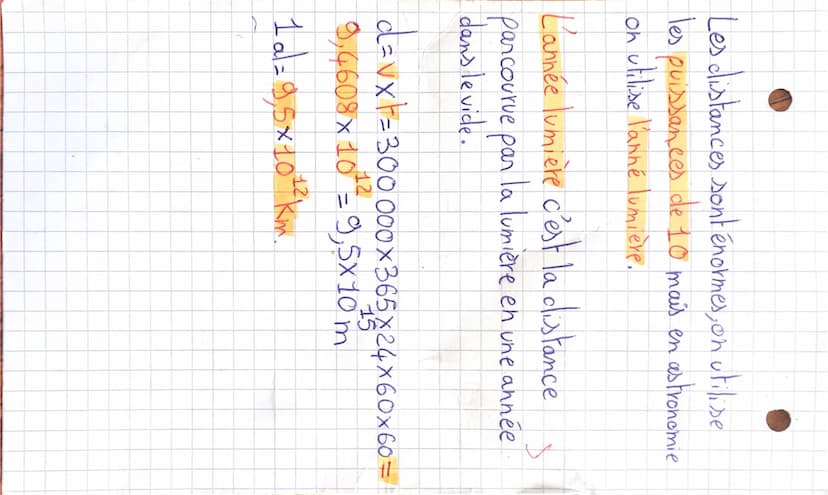 Les distances sont énormes, on utilise
les puissances de 10 mais en astronomie
on utilise l'anné lumière.
L'année lumière c'est la distance
parcourue par la lumière en une année
dans le vide.
d=v×t=300 000×365×24×60×60=
9,4608×10¹² = 9,5×10¹⁵ m
1 al= 9,5×10¹² km.